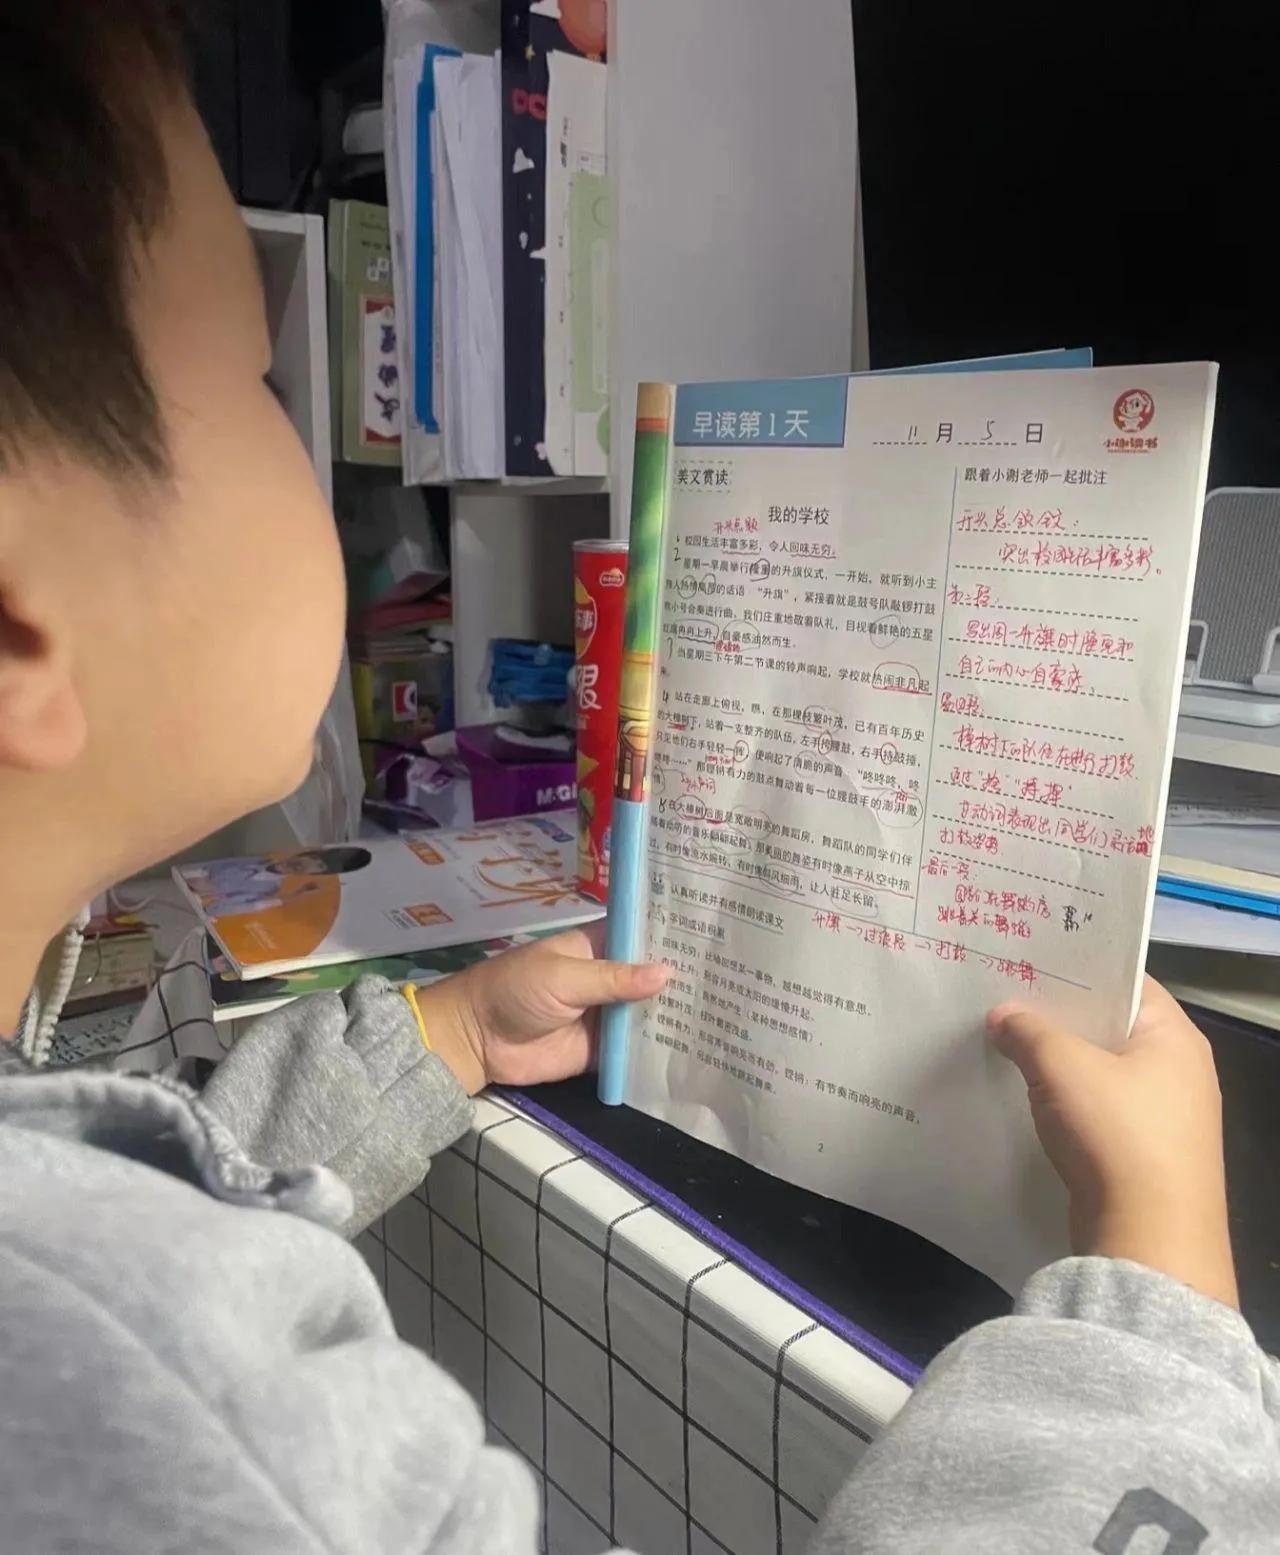 早读第1天
11月5日
小谢读书
美文赏读
跟着小谢老师一起批注
我的学校
开头点题
校园生活丰富多彩，令人回味无穷。
星期一早晨举行隆重的升旗仪式，一开始，就听到小主
持人热情的话语“升旗”，紧接着就是鼓号队敲锣打鼓
吹小号合奏进行曲，我们庄重地敬着队礼，目视着鲜艳的五星
红旗冉冉上升，自豪感油然而生。
当星期三下午第二节课的铃声响起，学校就热闹非凡起
来。
站在走廊上俯视，瞧，在那棵枝繁叶茂，已有百年历史
的大樟树下，站着一支整齐的队伍，左手挎腰鼓，右手持鼓捶，
只见他们右手轻轻一挥，便响起了清脆的声音，“咚咚咚，咚
咚咚……”那铿锵有力的鼓点舞动着每一位腰鼓手的澎湃激
情。
在大樟树后面是宽敞明亮的舞蹈房，舞蹈队的同学们伴
随着动听的音乐翩翩起舞，那美丽的舞姿有时像燕子从空中掠
过，有时像流水婉转，有时像斜风细雨，让人驻足长留。
开头总领全文：
突出校园生活丰富多彩。
第二段：
写出周一升旗时隆重和
自己的内心自豪感。
第四段：
樟树下的队伍在进行打鼓
通过“挎”“持挥”
等动词表现出同学们灵活地
打鼓姿势
最后一段：
同学在舞蹈房
升旗→过渡段→打鼓→跳舞
认真听读并有感情朗读课文
字词成语积累
1、回味无穷：比喻回想某一事物，越想越觉得有意思。
2、冉冉上升：形容月亮或太阳的缓慢升起。
油然而生：自然地产生（某种思想感情）。
枝繁叶茂：枝叶繁密茂盛。
5、铿锵有力：形容声音响亮而有劲。铿锵：有节奏而响亮的声音。
6、翩翩起舞：形容轻快地跳起舞来。
2